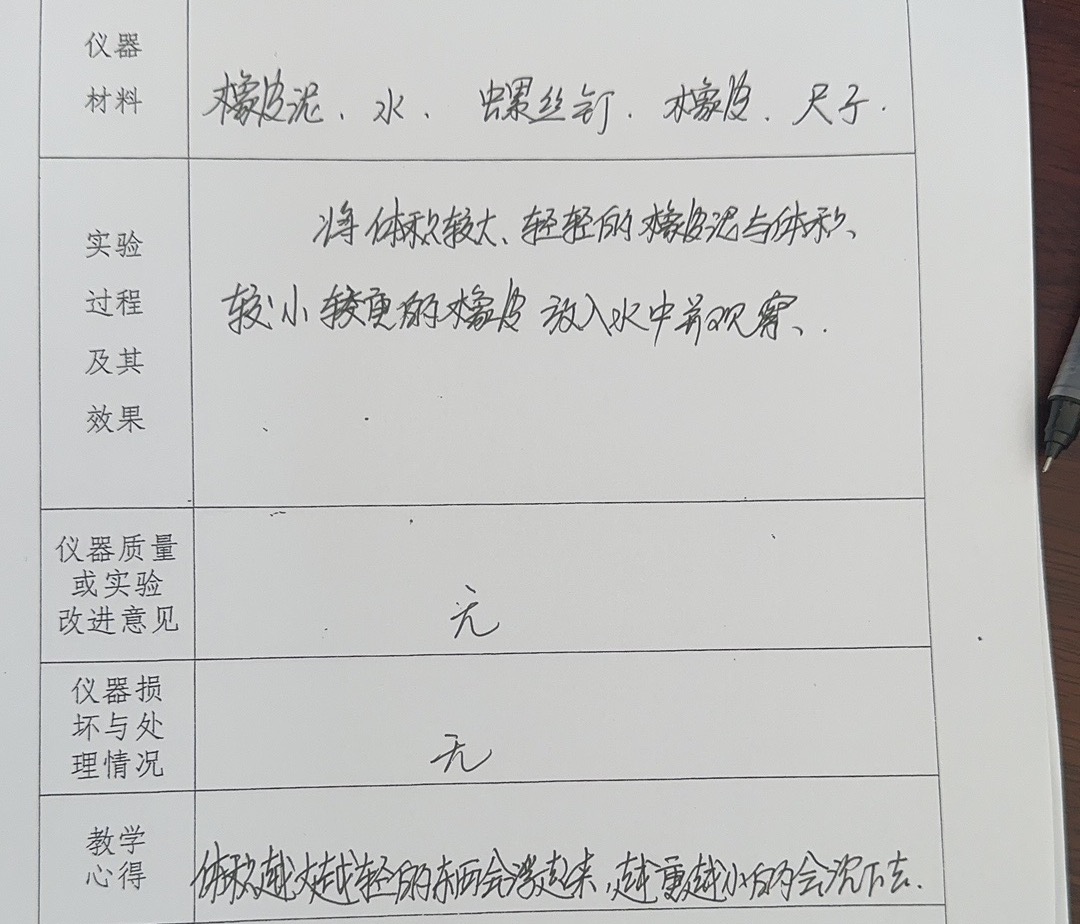 仪器
材料
橡皮泥、水、螺丝钉、橡皮、尺子.
实验
过程
及其
效果
将体积较大、轻轻的橡皮泥与体积、
较小较重的橡皮放入水中并观察、.
仪器质量
或实验
改进意见
无
仪器损
坏与处
理情况
无
教学
心得
体积越大越轻的东西会浮起来,越重越小的会沉下去.